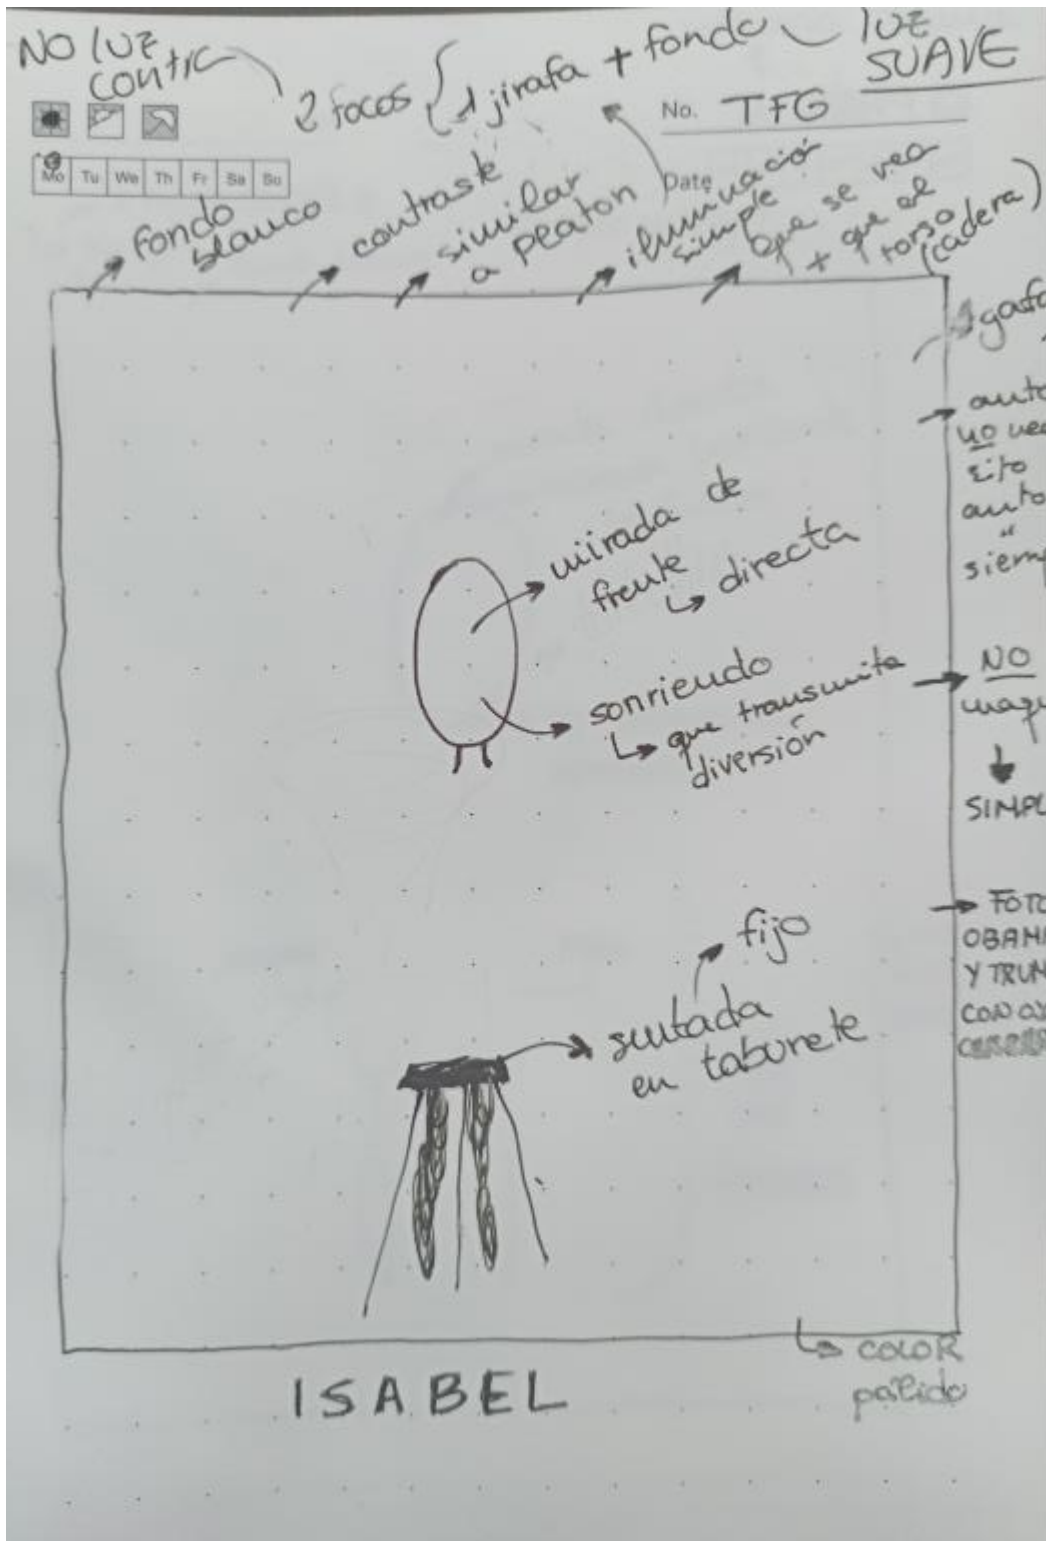 NO luz
contra
2 focos { 1 jirafa + fondo
luz
SUAVE
No. TFG
Mo Tu We Th Fr Sa Su
Date
fondo
blanco
contraste
similar
a peaton
iluminación
simple
que se vea
+ que el
torso
(cadera)
auto
no
auto
siem
mirada de
frente
↳ directa
sonriendo
↳ que transmita
diversión
NO
maqu
SIMPL
FOTO
OBAMA
Y TRUM
fijo
sentada
en taburete
↳ COLOR
pálido
ISABEL